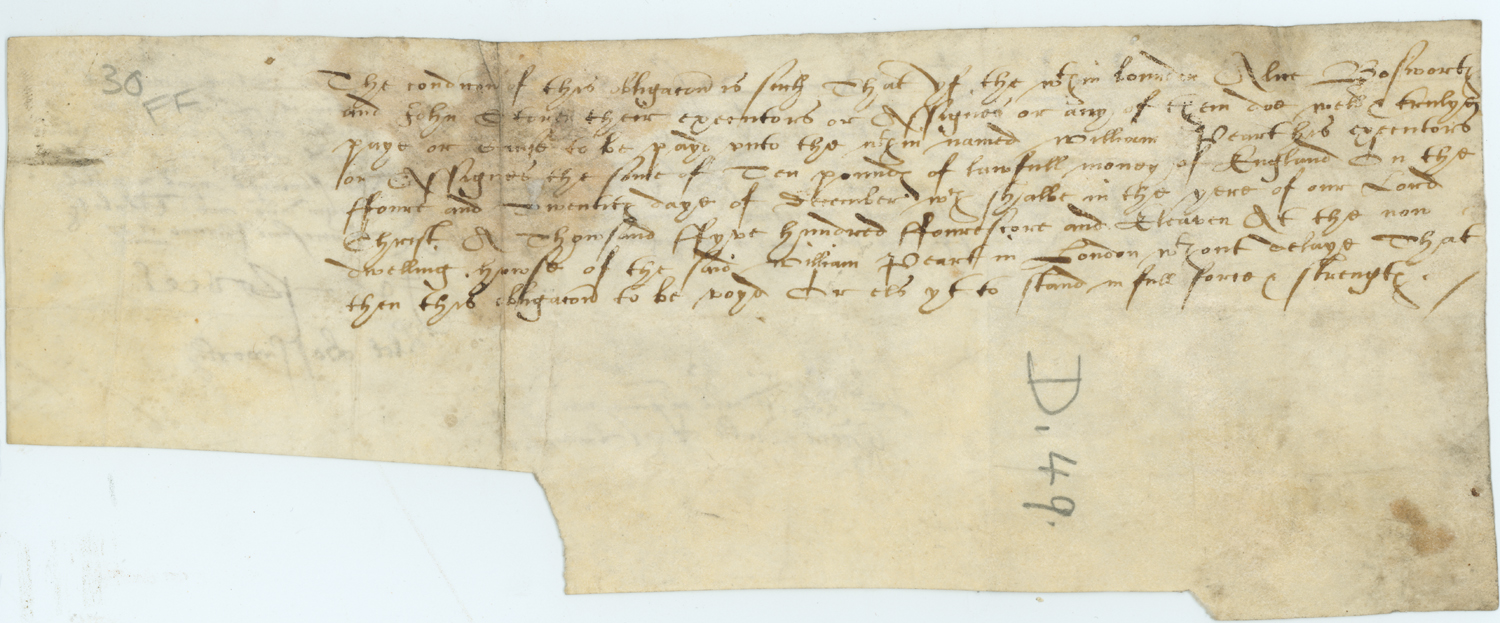 30
FF
The condicon of this obligacon is such That yf the wthin bounden Alne Bosworth
and John Stone their executors or Assignes or any of them doe well & truly
paye or cause to be payd unto the wthin named William Peart his executors
or Assignes the some of Ten poundes of lawfull money of England On the
ffoure and Twentith daye of December wch shalbe in the yere of our Lord
Christ A Thowsand ffyve hundred ffourescore and Eleaven At the now
dwelling howse of the said William Peart in London wthout delaye That
then this obligacon to be voyd Or els yt to stand in full force & strength
D. 49.